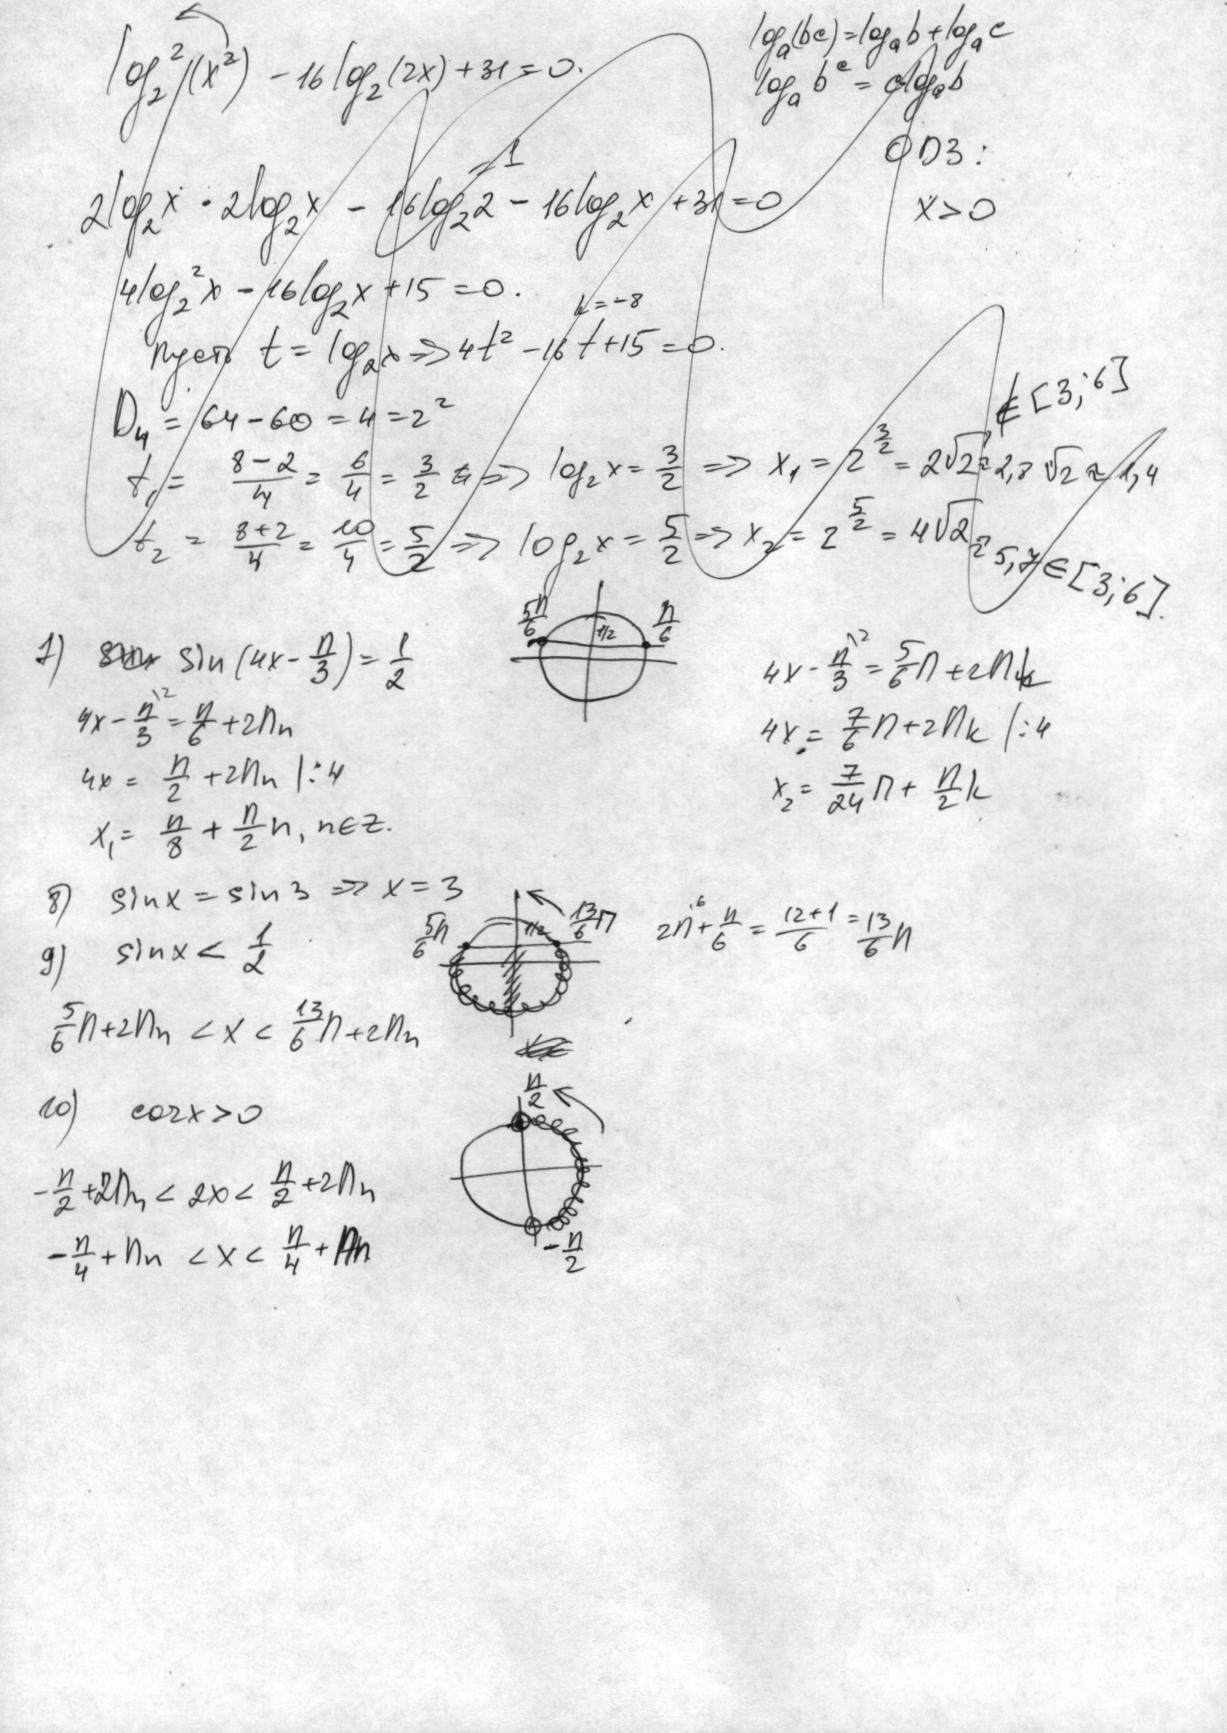 log₂²(x²) - 16log₂(2x) + 31 = 0.
logₐ(bc) = logₐb + logₐc
logₐ bᶜ = c logₐb
ОДЗ:
x > 0
= 1
2log₂x · 2log₂x - 16log₂2 - 16log₂x + 31 = 0
4log₂²x - 16log₂x + 15 = 0.
k = -8
пусть t = log₂x ⇒ 4t² - 16t + 15 = 0.
D₄ = 64 - 60 = 4 = 2²
∉ [3;6]
t₁ = (8-2)/4 = 6/4 = 3/2 ⇒ log₂x = 3/2 ⇒ x₁ = 2^(3/2) = 2√2 ≈ 2,8 √2 ≈ 1,4
t₂ = (8+2)/4 = 10/4 = 5/2 ⇒ log₂x = 5/2 ⇒ x₂ = 2^(5/2) = 4√2 ≈ 5,7 ∈ [3;6].
5π/6 1/2 π/6
7) sin(4x - π/3) = 1/2
4x - π/3 = π/6 + 2πn
4x = π/2 + 2πn |:4
x₁ = π/8 + π/2 n, n∈Z.
4x - π/3 = 5/6 π + 2πk
4x = 7/6 π + 2πk |:4
x₂ = 7/24 π + π/2 k
8) sinx = sin3 ⇒ x = 3
9) sinx < 1/2
5/6 π 1/2 13/6 π
2π + π/6 = (12+1)/6 = 13/6 π
5/6 π + 2πn < x < 13/6 π + 2πn
10) cos2x > 0
π/2
-π/2 + 2πn < 2x < π/2 + 2πn
-π/4 + πn < x < π/4 + πn
-π/2